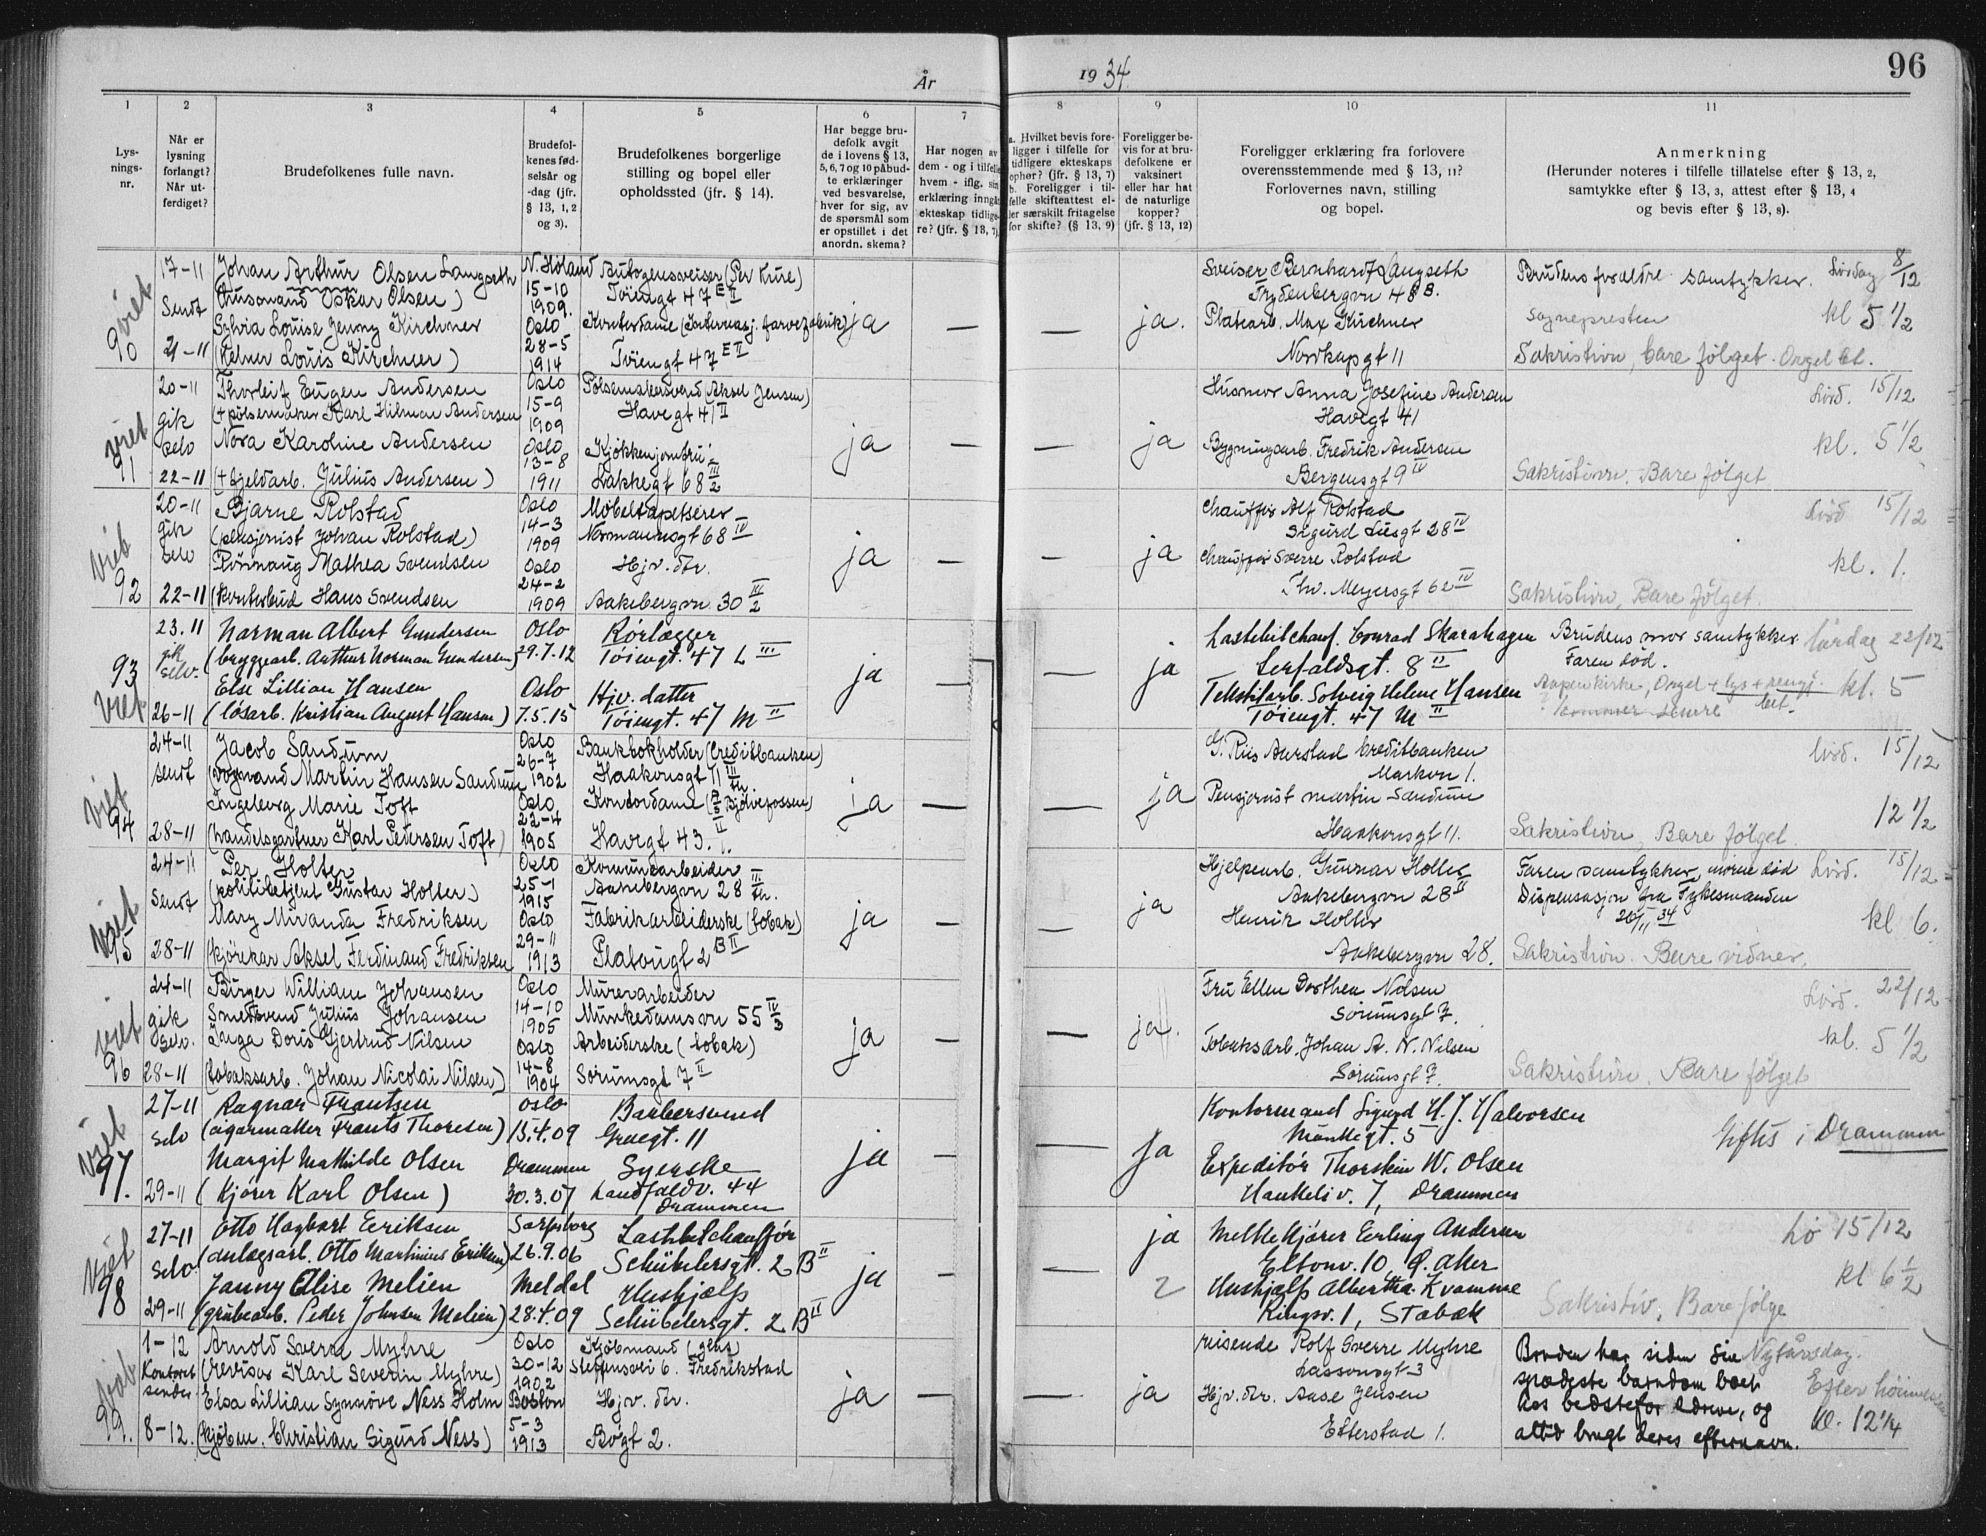 År 1934. 96
1 2 3 4 5 6 7 8 9 10 11
Lys-
nings-
nr.
Når er
lysning
forlangt?
Når ut-
ferdiget?
Brudefolkenes fulle navn.
Brudefol-
kenes fød-
selsår og
-dag (jfr.
§ 13, 1, 2
og 3).
Brudefolkenes borgerlige
stilling og bopel eller
opholdssted (jfr. § 14).
Har begge bru-
defolk avgit
de i lovens § 13,
5, 6, 7 og 10 påbud-
te erklæringer
ved besvarelse,
hver for sig, av
de spørsmål som
er opstillet i det
anordn. skema?
Har nogen av
dem - og i tilfelle
hvem - iflg. sin
erklæring inngått
ekteskap tidlige-
re? (jfr. § 13, 7).
a. Hvilket bevis fore-
ligger i tilfelle for
tidligere ekteskaps
ophør? (jfr. § 13, 7)
b. Foreligger i til-
felle skifteattest el-
ler særskilt fritagelse
for skifte? (§ 13, 9)
Foreligger be-
vis for at bru-
defolkene er
vaksinert
eller har hat
de naturlige
kopper?
(jfr. § 13, 12)
Foreligger erklæring fra forlovere
overensstemmende med § 13, 11?
Forlovernes navn, stilling
og bopel.
Anmerkning
(Herunder noteres i tilfelle tillatelse efter § 13, 2,
samtykke efter § 13, 3, attest efter § 13, 4
og bevis efter § 13, 8).
viet
90
17-11
Sendt
21-11
Johan Arthur Olsen Langseth
Oskar Olsen)
Sylvia Louise Jenny Kirchner
(kelner Louis Kirchner)
N. Høland
15-10
1909.
Oslo
28-5
1914
Autogensveiser (Per Kure)
Tøiengt 47 E II
Kontordame (Internasj. farvefabrik)
Tøiengt 47 E II
ja — — ja.
Sveiser Bernhardt Langseth
Trydenbergvn 48 B.
Platearb. Max Kirchner
Nordkapgt 11
Brudens forældre samtykker. Lørdag 8/12
sognepresten kl 5 1/2
Sakristien, bare følget. Orgel bet.
viet
91
20-11
gik
selv
22-11
Thorleif Eugen Andersen
(+ pølsemaker Karl Hilmar Andersen
Nora Karoline Andersen
(+ fjeldarb. Julius Andersen)
Oslo
15-9
1909
Oslo
13-8
1911
Pølsemakersvend (Aksel Jensen)
Havegt 41 II
Kjøkkenjomfru
Lakkegt 68 III/2
ja — — ja
Husmor Anna Josefine Andersen
Havegt 41
Bygningsarb. Fredrik Andersen
Bergensgt 9 IV
Lørd. 15/12
kl. 5 1/2
Sakristien. Bare følget
Viet
92
20-11
gik
selv
22-11
Bjarne Rolstad
(pensjonist Johan Rolstad)
Rønnaug Mathea Svendsen
(kontorbud Hans Svendsen
Oslo
14-3
1909
Oslo
24-2
1909
Møbeltapetserer
Normannsgt 68 IV
Hjv. dtr.
Aakebergvn. 30 III/2
ja — — ja
Chauffør Alf Rolstad
Sigurd Liesgt 28 IV
Chauffør Sverre Rolstad
Thv. Meyersgt 62 IV
Lørd 15/12
kl. 1.
Sakristien, Bare følget
93
Viet
23.11
gik
selv.
26-11
Norman Albert Gundersen
(bryggearb. Arthur Norman Gundersen)
Else Lillian Hansen
(løsarb. Kristian August Hansen)
Oslo
29.7.12
Oslo
7.5.15
Rørlægger
Tøiengt. 47 L III
Hjv. datter
Tøiengt. 47 M II
ja — — ja
Lastebilchauf. Conrad Skarahagen
Lerfaldsgt. 8 II
Tekstilarb. Solveig Helene Hansen
Tøiengt. 47 M II
Brudens mor samtykker lørdag 22/12
Faren død.
Aapen kirke, Orgel + lys + kl. 5
bet.
Viet
94
24-11
sendt
28-11
Jacob Sandum
(vognmand Martin Hansen Sandum
Ingeborg Marie Toft
(handelsgartner Karl Petersen Toft)
Oslo
26-7
1902
Oslo
22-4
1905
Bankbokholder (Creditbanken)
Haakonsgt 11
Kontordame (Bjølvefossen)
Havegt 43. II
ja — — ja
G. Riis Aurstad Creditbanken
Markvn 1.
Pensjonist Martin Sandum
Haakonsgt 11.
Lørd. 15/12
12 1/2
Sakristien, Bare følget.
Viet
95
24-11
Sendt
28-11
Per Holter
(politibetjent Gustav Holter)
Mary Miranda Fredriksen
(kjørekar Aksel Ferdinand Fredriksen
Oslo
25-1
1915
Oslo
29-11
1913
Komunearbeider
Aakebergvn 28 III
Fabrikarbeiderske (tobak)
Platougt 2 B II
ja — — ja
Hjelpearb. Gunnar Holter
Aakebergvn 28 II
Henrik Holter
Aakebergvn 28.
Faren samtykker, moren død Lørd. 15/12
Dispensasjon fra Fylkesmanden
20/11 34 kl 6.
Sakristien. Bare vidner.
viet
96
24-11
gik
selv.
28-11
Birger William Johansen
Smedsvend Julius Johansen
Inga Doris Gjertrud Nilsen
(tobaksarb. Johan Nicolai Nilsen)
Oslo
14-10
1905
Oslo
14-8
1904
Murerarbeider
Munkedamsvn 55 IV/3
Arbeiderske (tobak)
Sørumsgt 7 II
ja — — ja.
Fru Ellen Dorthea Nilsen
Sørumsgt 7.
Tobaksarb. Johan A. N. Nilsen
Sørumsgt 7.
Lørd. 22/12
kl. 5 1/2
Sakristien. Bare følget
Viet
97.
27-11
selv
29-11
Ragnar Frantsen
(cigarmaker Frants Thoresen)
Margit Mathilde Olsen
(kjører Karl Olsen)
Oslo
13.4.09
Drammen
30.3.07
Barbersvend
Gruegt. 11
Syerske
Landfaldv. 44
Drammen
ja — — ja
Kontormand Sigurd H. J. Halvorsen
Munkegt. 5
Expeditør Thorstein W. Olsen
Haukeliv. 7, Drammen
Giftes i Drammen
Viet
98
27-11
selv
29-11
Otto Hagbart Eriksen
(anlægsarb. Otto Martinius Eriksen)
Janny Elise Melien
(grubearb. Peder Johnsen Melien)
Sarpsborg
26.9.06
Meldal
28.4.09
Lastebilchauffør
Schübelersgt. 2 B II
Hushjælp
Schübelersgt. 2 B II
ja — ja
2
Melkekjører Erling Andersen
Eltonv. 10, Ø. Aker
Hushjælp Albertha Kvamme
Ringsv. 1, Stabæk
Lø 15/12
kl 6 1/2
Sakristiv, Bare følge
Viet
99.
1-12
Kontoret
sender
8-12.
Arnold Sverre Myhre
(revisor Karl Severin Myhre)
Elsa Lillian Synnöve Ness Holm
(kjøbm. Christian Sigurd Ness)
Oslo
30-12
1902
Boston
5-3
1913
Kjøbmand (glas)
Steffensvei 6. Fredrikstad
Hjv. dtr.
Bøgt 2.
ja — — ja
reisende Rolf Sverre Myhre
Lassonsgt 3
Hjv. dtr. Aase Jensen
Etterstad 1.
Bruden har siden sin Nytårsdag.
spædeste barndom boet Efter høimessen
hos bedsteforældrene, og kl. 12 1/4
altid brugt deres efternavn.